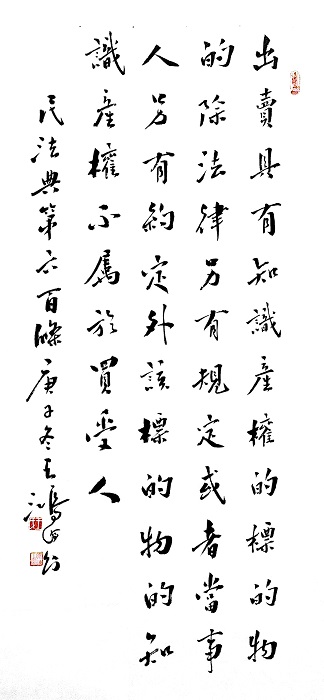 出賣具有知識產權的標的物
的除法律另有規定或者當事
人另有約定外該標的物的知
識產權不屬於買受人
民法典第六百條庚子冬王鴻